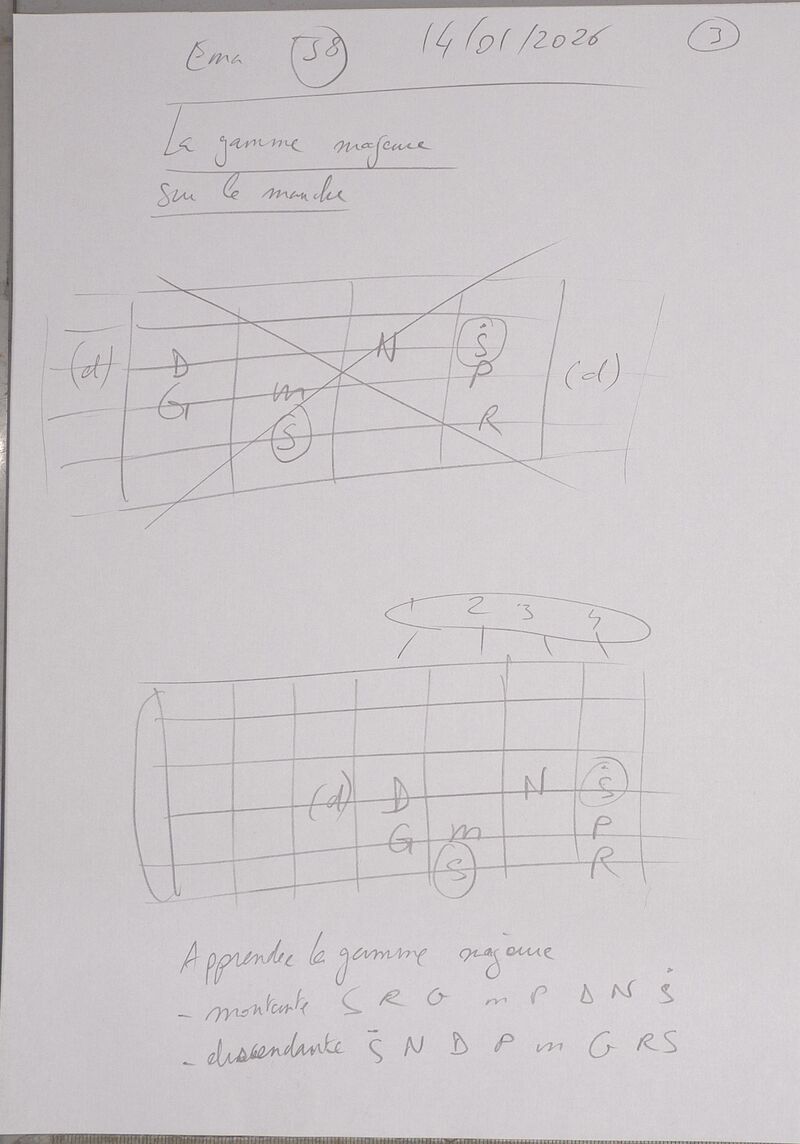 Ema 58 14/01/2026 3
La gamme majeure
sur le manche
(d) D N Ṡ (d)
G m P
S R
1 2 3 4
(d) D N Ṡ
G m P
S R
Apprendre la gamme majeure
- montante S R G m P D N Ṡ
- descendante Ṡ N D P m G R S